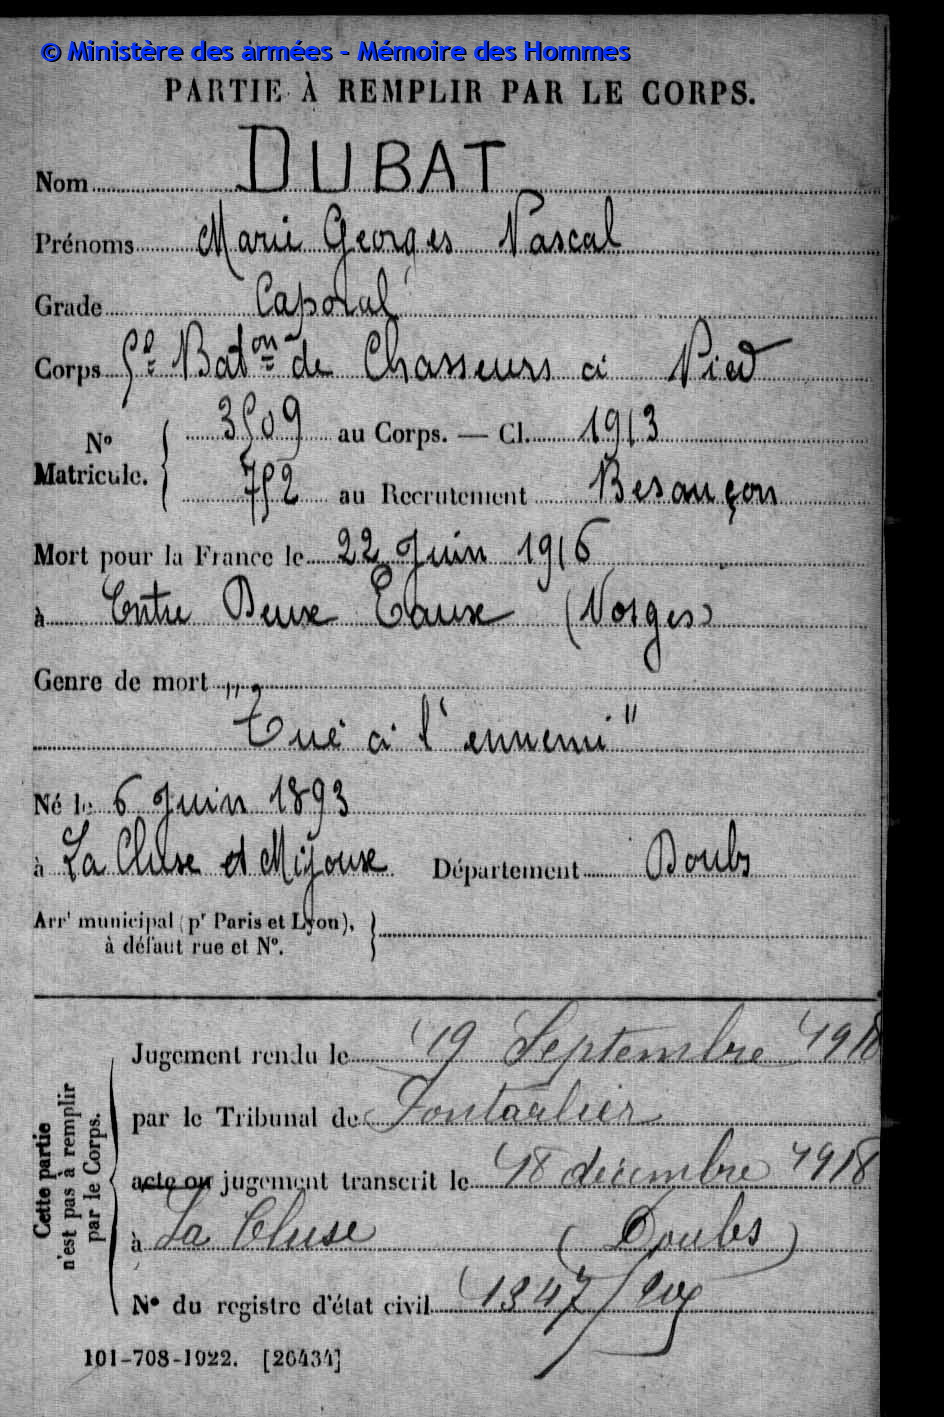 © Ministère des armées - Mémoire des Hommes
PARTIE À REMPLIR PAR LE CORPS.
Nom DUBAT
Prénoms Marie Georges Pascal
Grade Caporal
Corps 5e Baton de Chasseurs à Pied
N° Matricule. 3509 au Corps. — Cl. 1913
752 au Recrutement Besançon
Mort pour la France le 22 Juin 1916
à Entre Deux Eaux (Vosges)
Genre de mort
"Tué à l'ennemi"
Né le 6 Juin 1893
à La Cluse et Mijoux Département Doubs
Arrt municipal (pr Paris et Lyon),
à défaut rue et N°.
Cette partie
n'est pas à remplir
par le Corps.
Jugement rendu le 19 Septembre 1918
par le Tribunal de Pontarlier
acte ou jugement transcrit le 18 décembre 1918
à La Cluse (Doubs)
N° du registre d'état civil 1347/
101-708-1922. [26434]